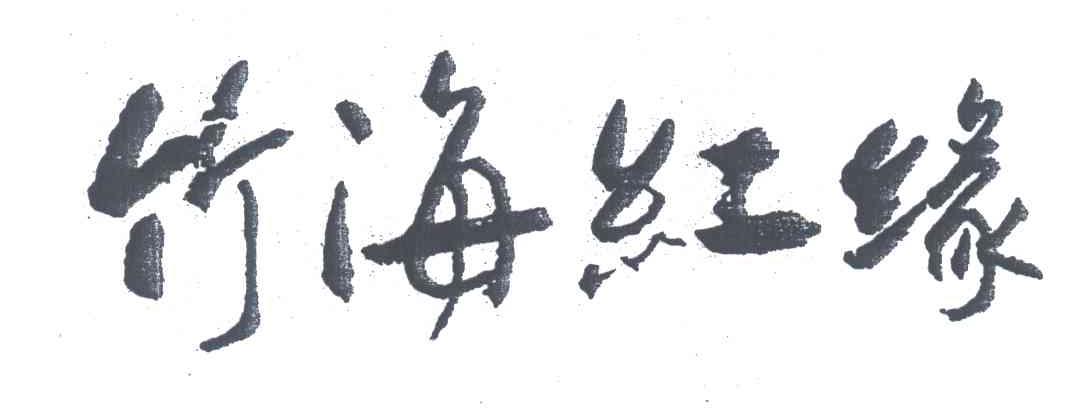 竹海红缘